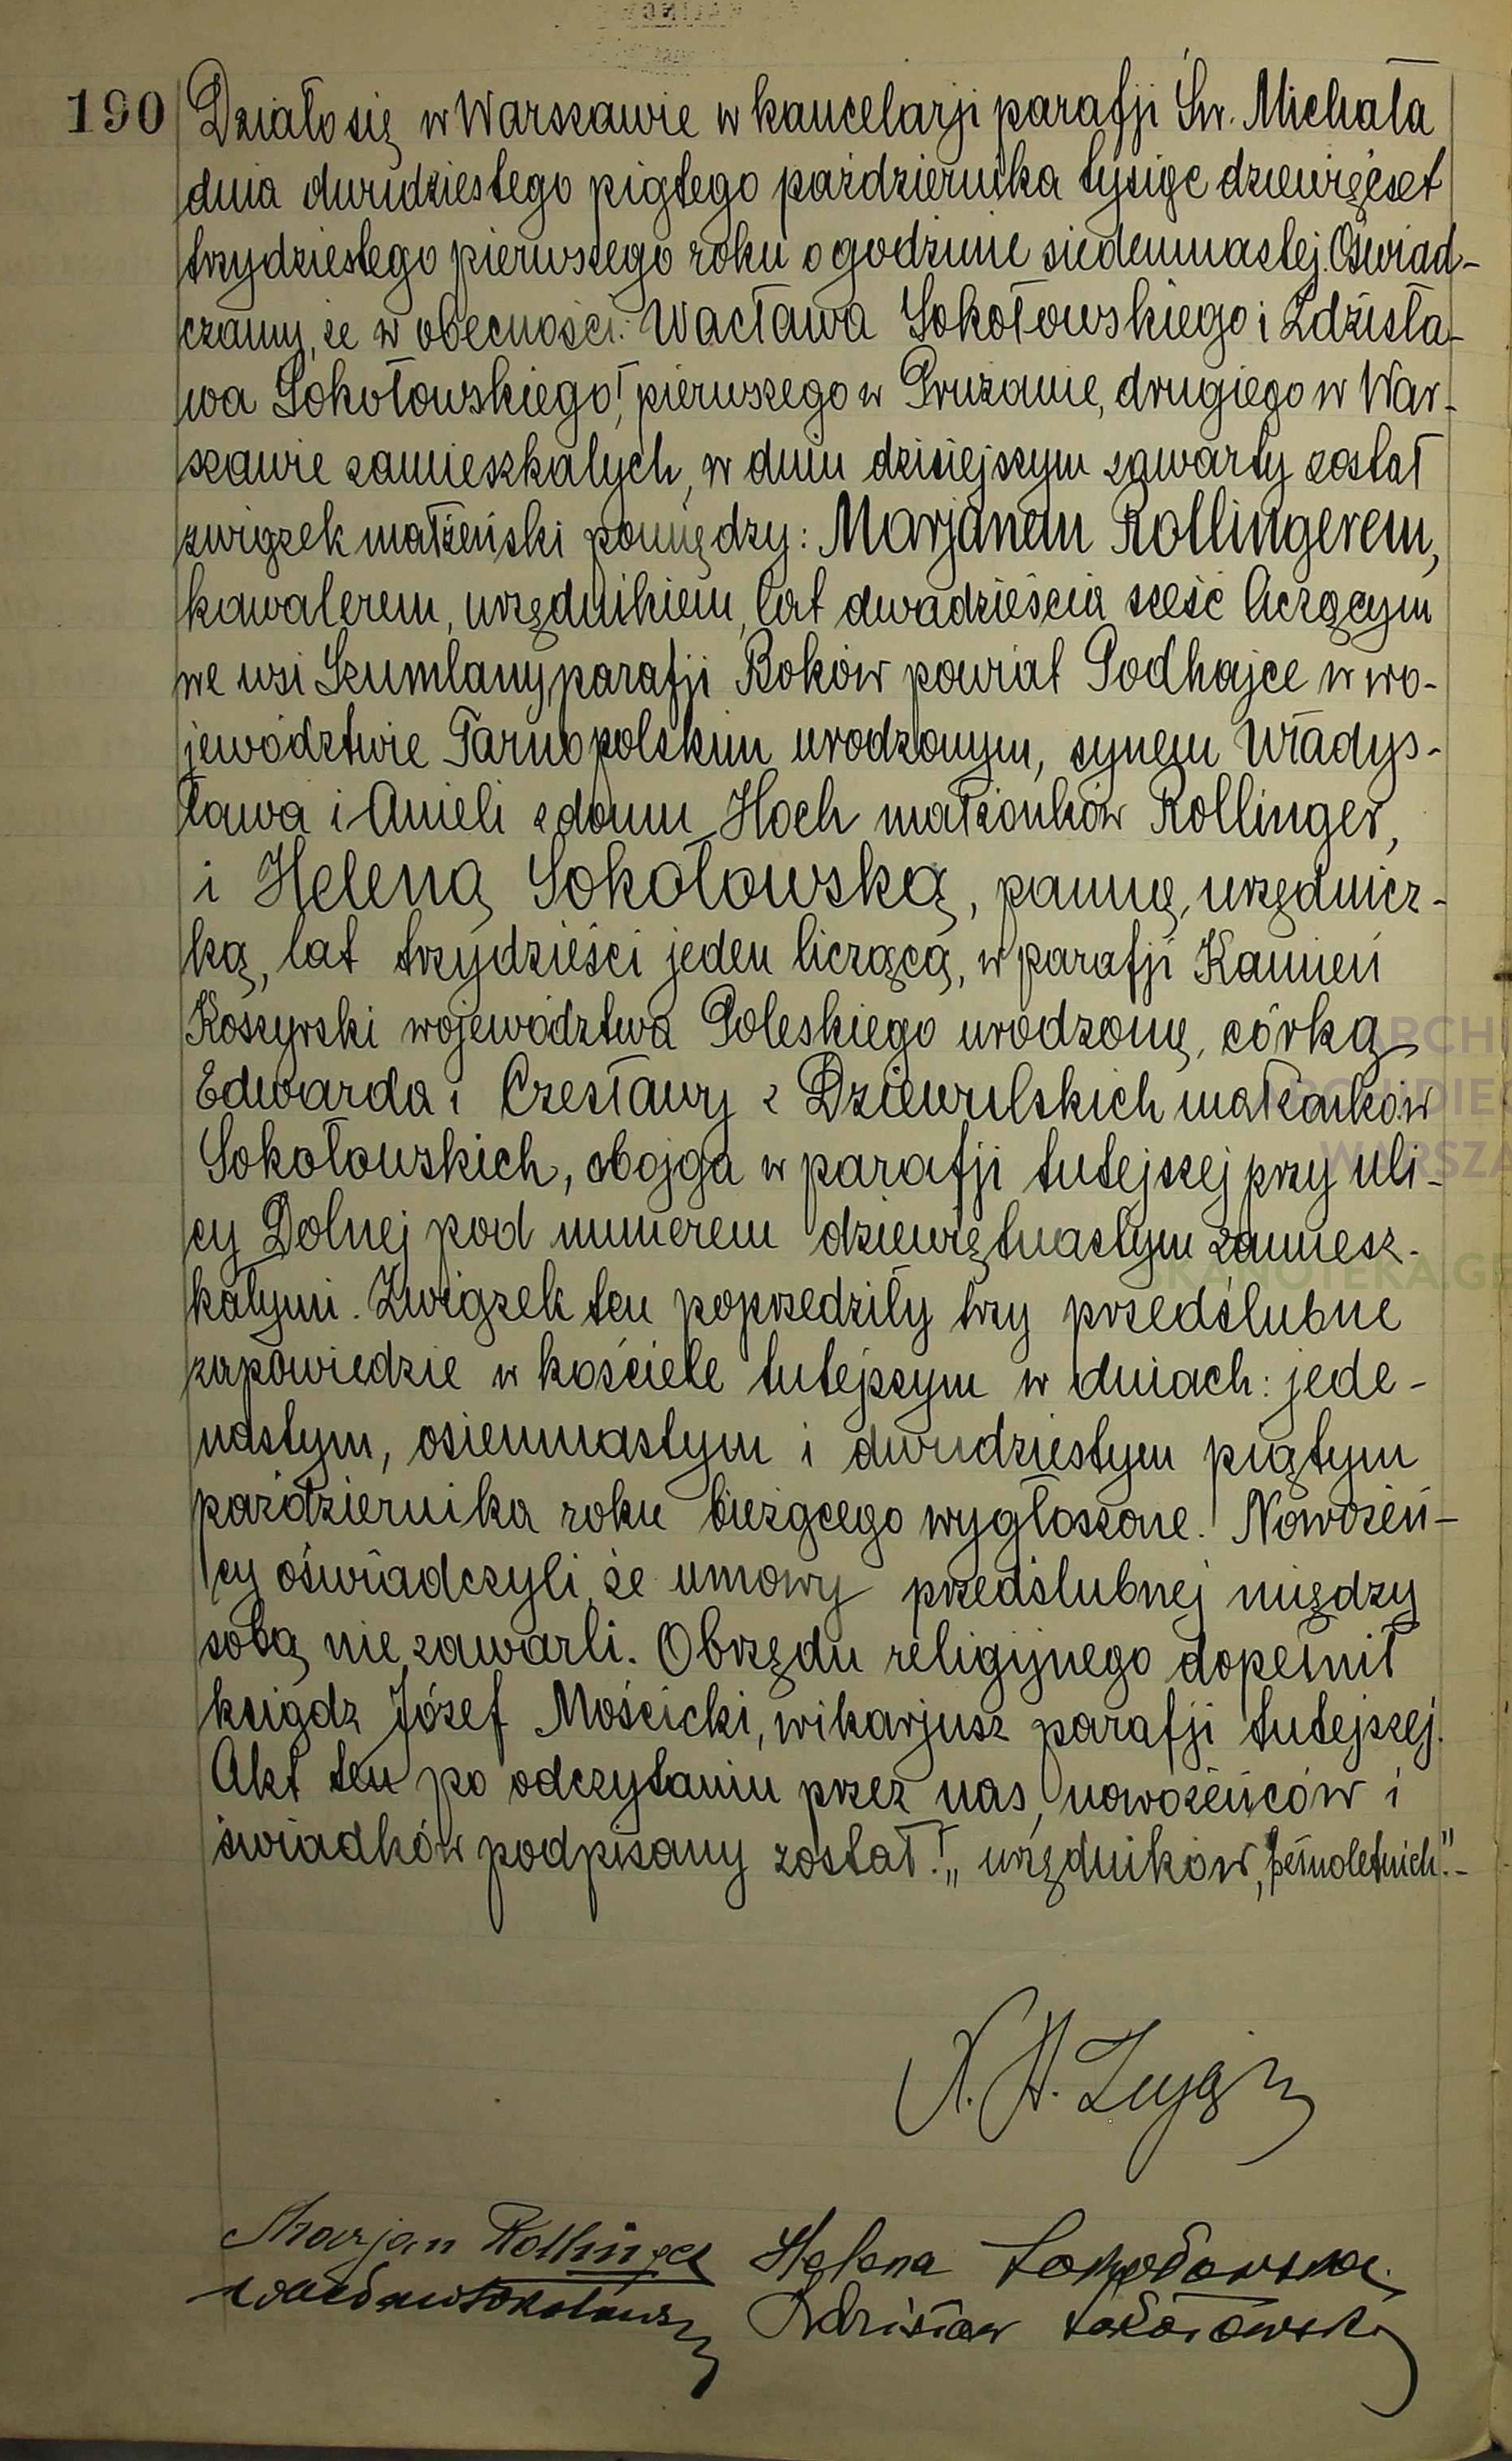 190
Działo się w Warszawie w kancelarji parafji Św. Michała
dnia dwudziestego piątego października tysiąc dziewięćset
trzydziestego pierwszego roku o godzinie siedemnastej. Oświad-
czamy, że w obecności: Wacława Sokołowskiego i Zdzisła-
wa Sokołowskiego!, pierwszego w Prużanie, drugiego w War-
szawie zamieszkałych, w dniu dzisiejszym zawarty został
związek małżeński pomiędzy: Marjanem Rollingerem,
kawalerem, urzędnikiem, lat dwadzieścia sześć liczącym
we wsi Szumlany, parafji Boków powiat Podhajce w wo-
jewództwie Tarnopolskim urodzonym, synem Władys-
ława i Anieli z domu Hoch małżonków Rollinger,
i Heleną Sokołowską, panną, urzędnicz-
ką, lat trzydzieści jeden liczącą, w parafji Kamień
Koszyrski województwa Poleskiego urodzoną, córką
Edwarda i Czesławy z Dziewulskich małżonków
Sokołowskich, obojga w parafji tutejszej przy uli-
cy Dolnej pod numerem dziewiętnastym zamiesz-
kałymi. Związek ten poprzedziły trzy przedślubne
zapowiedzie w kościele tutejszym w dniach: jede-
nastym, osiemnastym i dwudziestym piątym
października roku bieżącego wygłoszone. Nowożeń-
cy oświadczyli, że umowy przedślubnej między
sobą nie zawarli. Obrzędu religijnego dopełnił
ksiądz Józef Mościcki, wikarjusz parafji tutejszej.
Akt ten po odczytaniu przez nas, nowożeńców i
świadków podpisany został! „urzędników, pełnoletnich."-
Marjan Rollinger Helena Sokołowska
Wacław Sokołowski Zdzisław Sokołowski
SKANOTEKA.GE